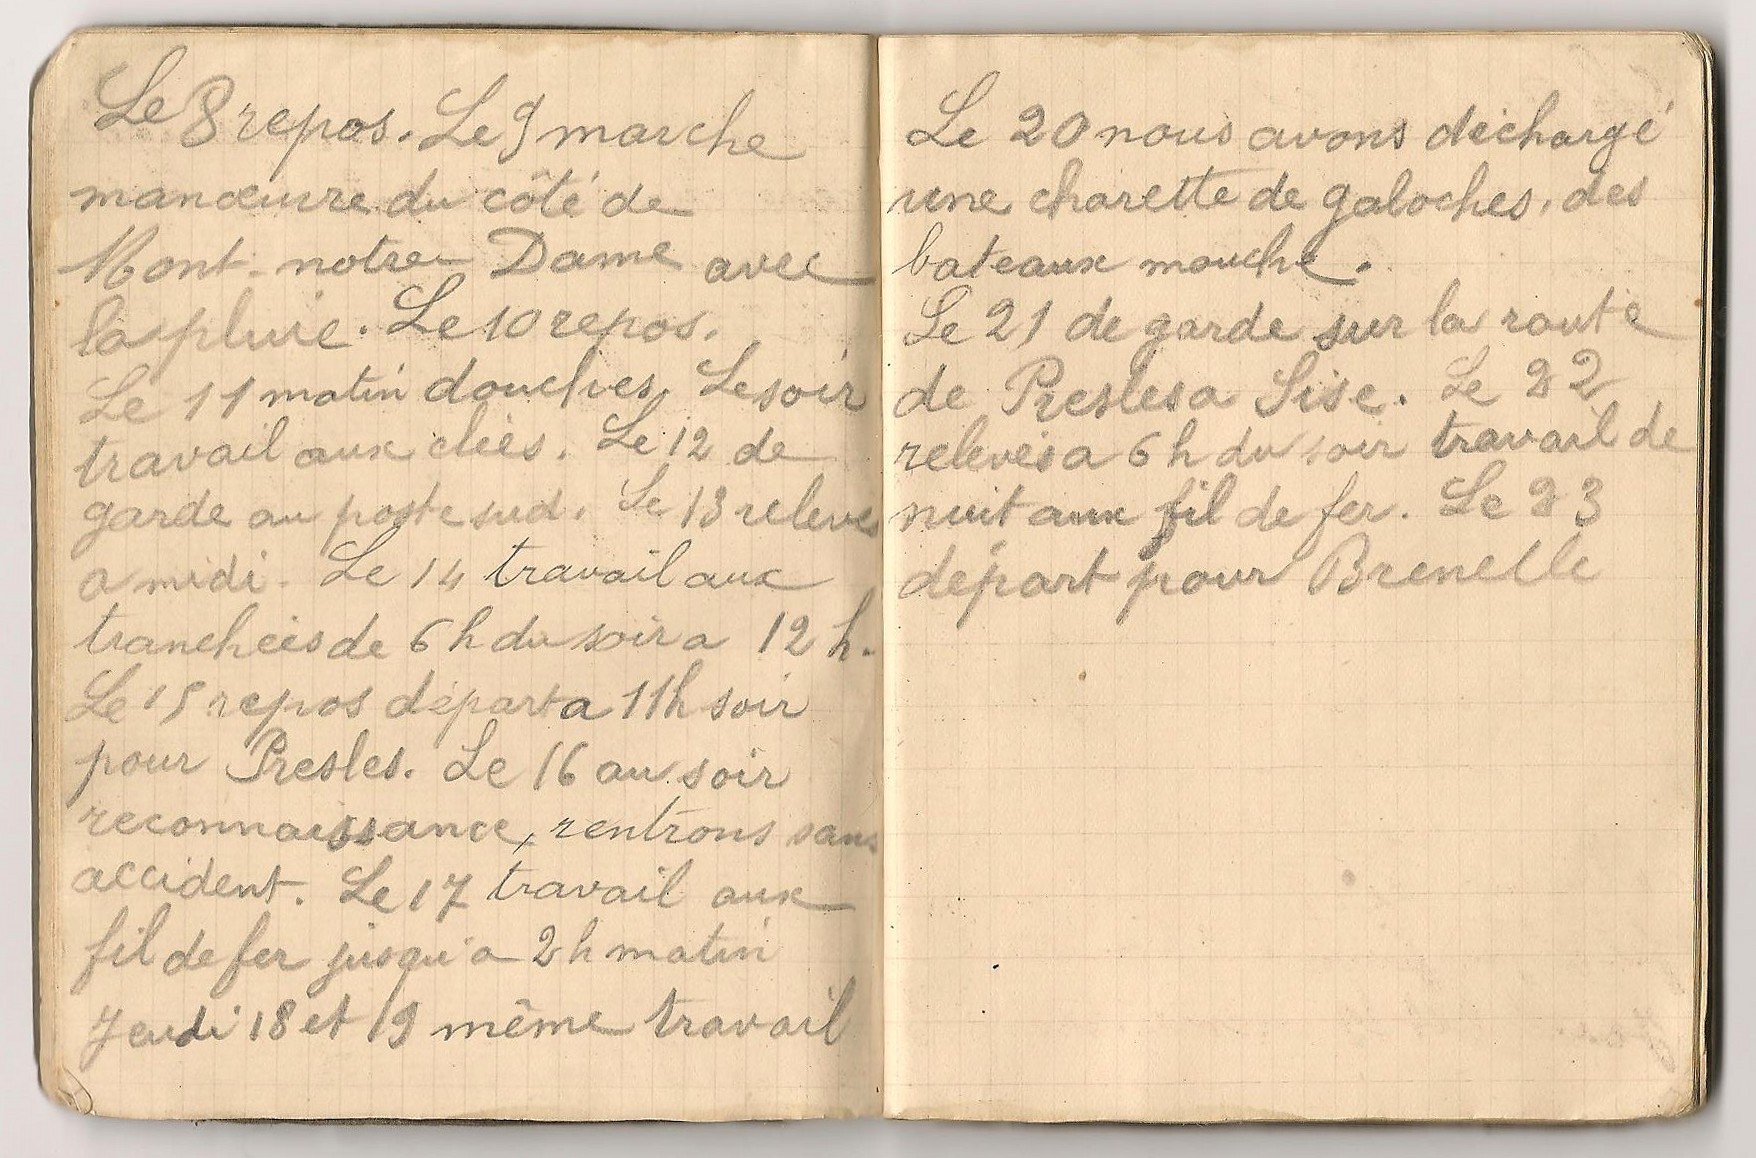 Le 8 repos. Le 9 marche
manœuvre du côté de
Mont-notre Dame avec
la pluie. Le 10 repos.
Le 11 matin douches. Le soir
travail aux cliés. Le 12 de
garde au poste sud. Le 13 relevé
a midi. Le 14 travail aux
tranchées de 6 h du soir a 12 h.
Le 15 repos départ a 11h soir
pour Presles. Le 16 au soir
reconnaissance, rentrons sans
accident. Le 17 travail aux
fil de fer jusqu'a 2 h matin
Jeudi 18 et 19 même travail
Le 20 nous avons déchargé
une charette de galoches, des
bateaux mouche.
Le 21 de garde sur la route
de Presles a Sise. Le 22
relevés a 6 h du soir travail de
nuit aux fil de fer. Le 23
départ pour Brenelle